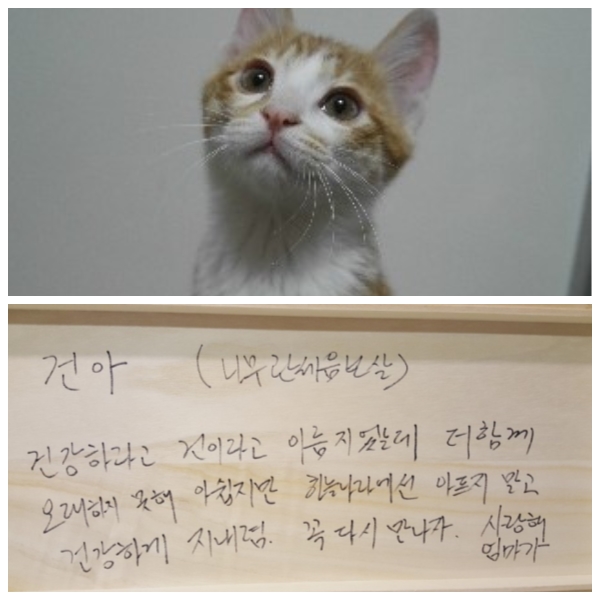 건아 (나무관세음보살)
건강하라고 건이라고 이름지었는데 더함께
오래하지 못해 아쉽지만 하늘나라에선 아프지 말고
건강하게 지내렴. 꼭 다시 만나자. 사랑해
엄마가